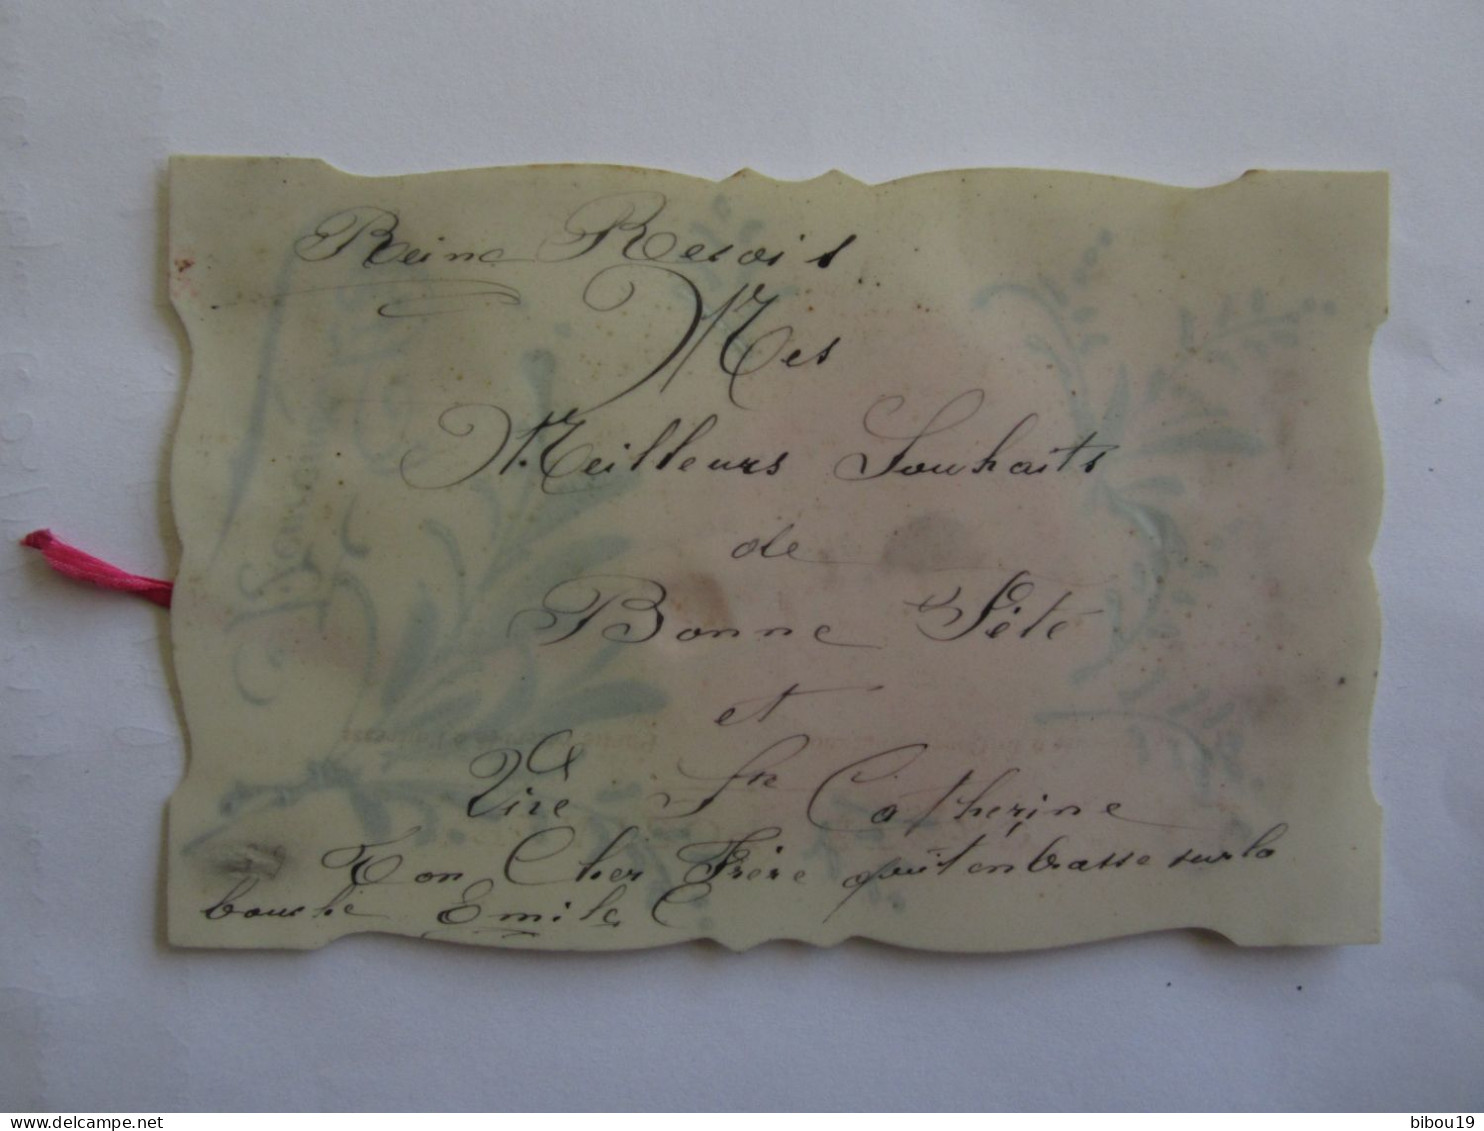 Reine Resois
Mes
Meilleurs Souhaits
de
Bonne Fête
et
Vive Ste Catherine
Ton Cher Frère qui t'enbrasse sur la
bouche Emile C
bibou19